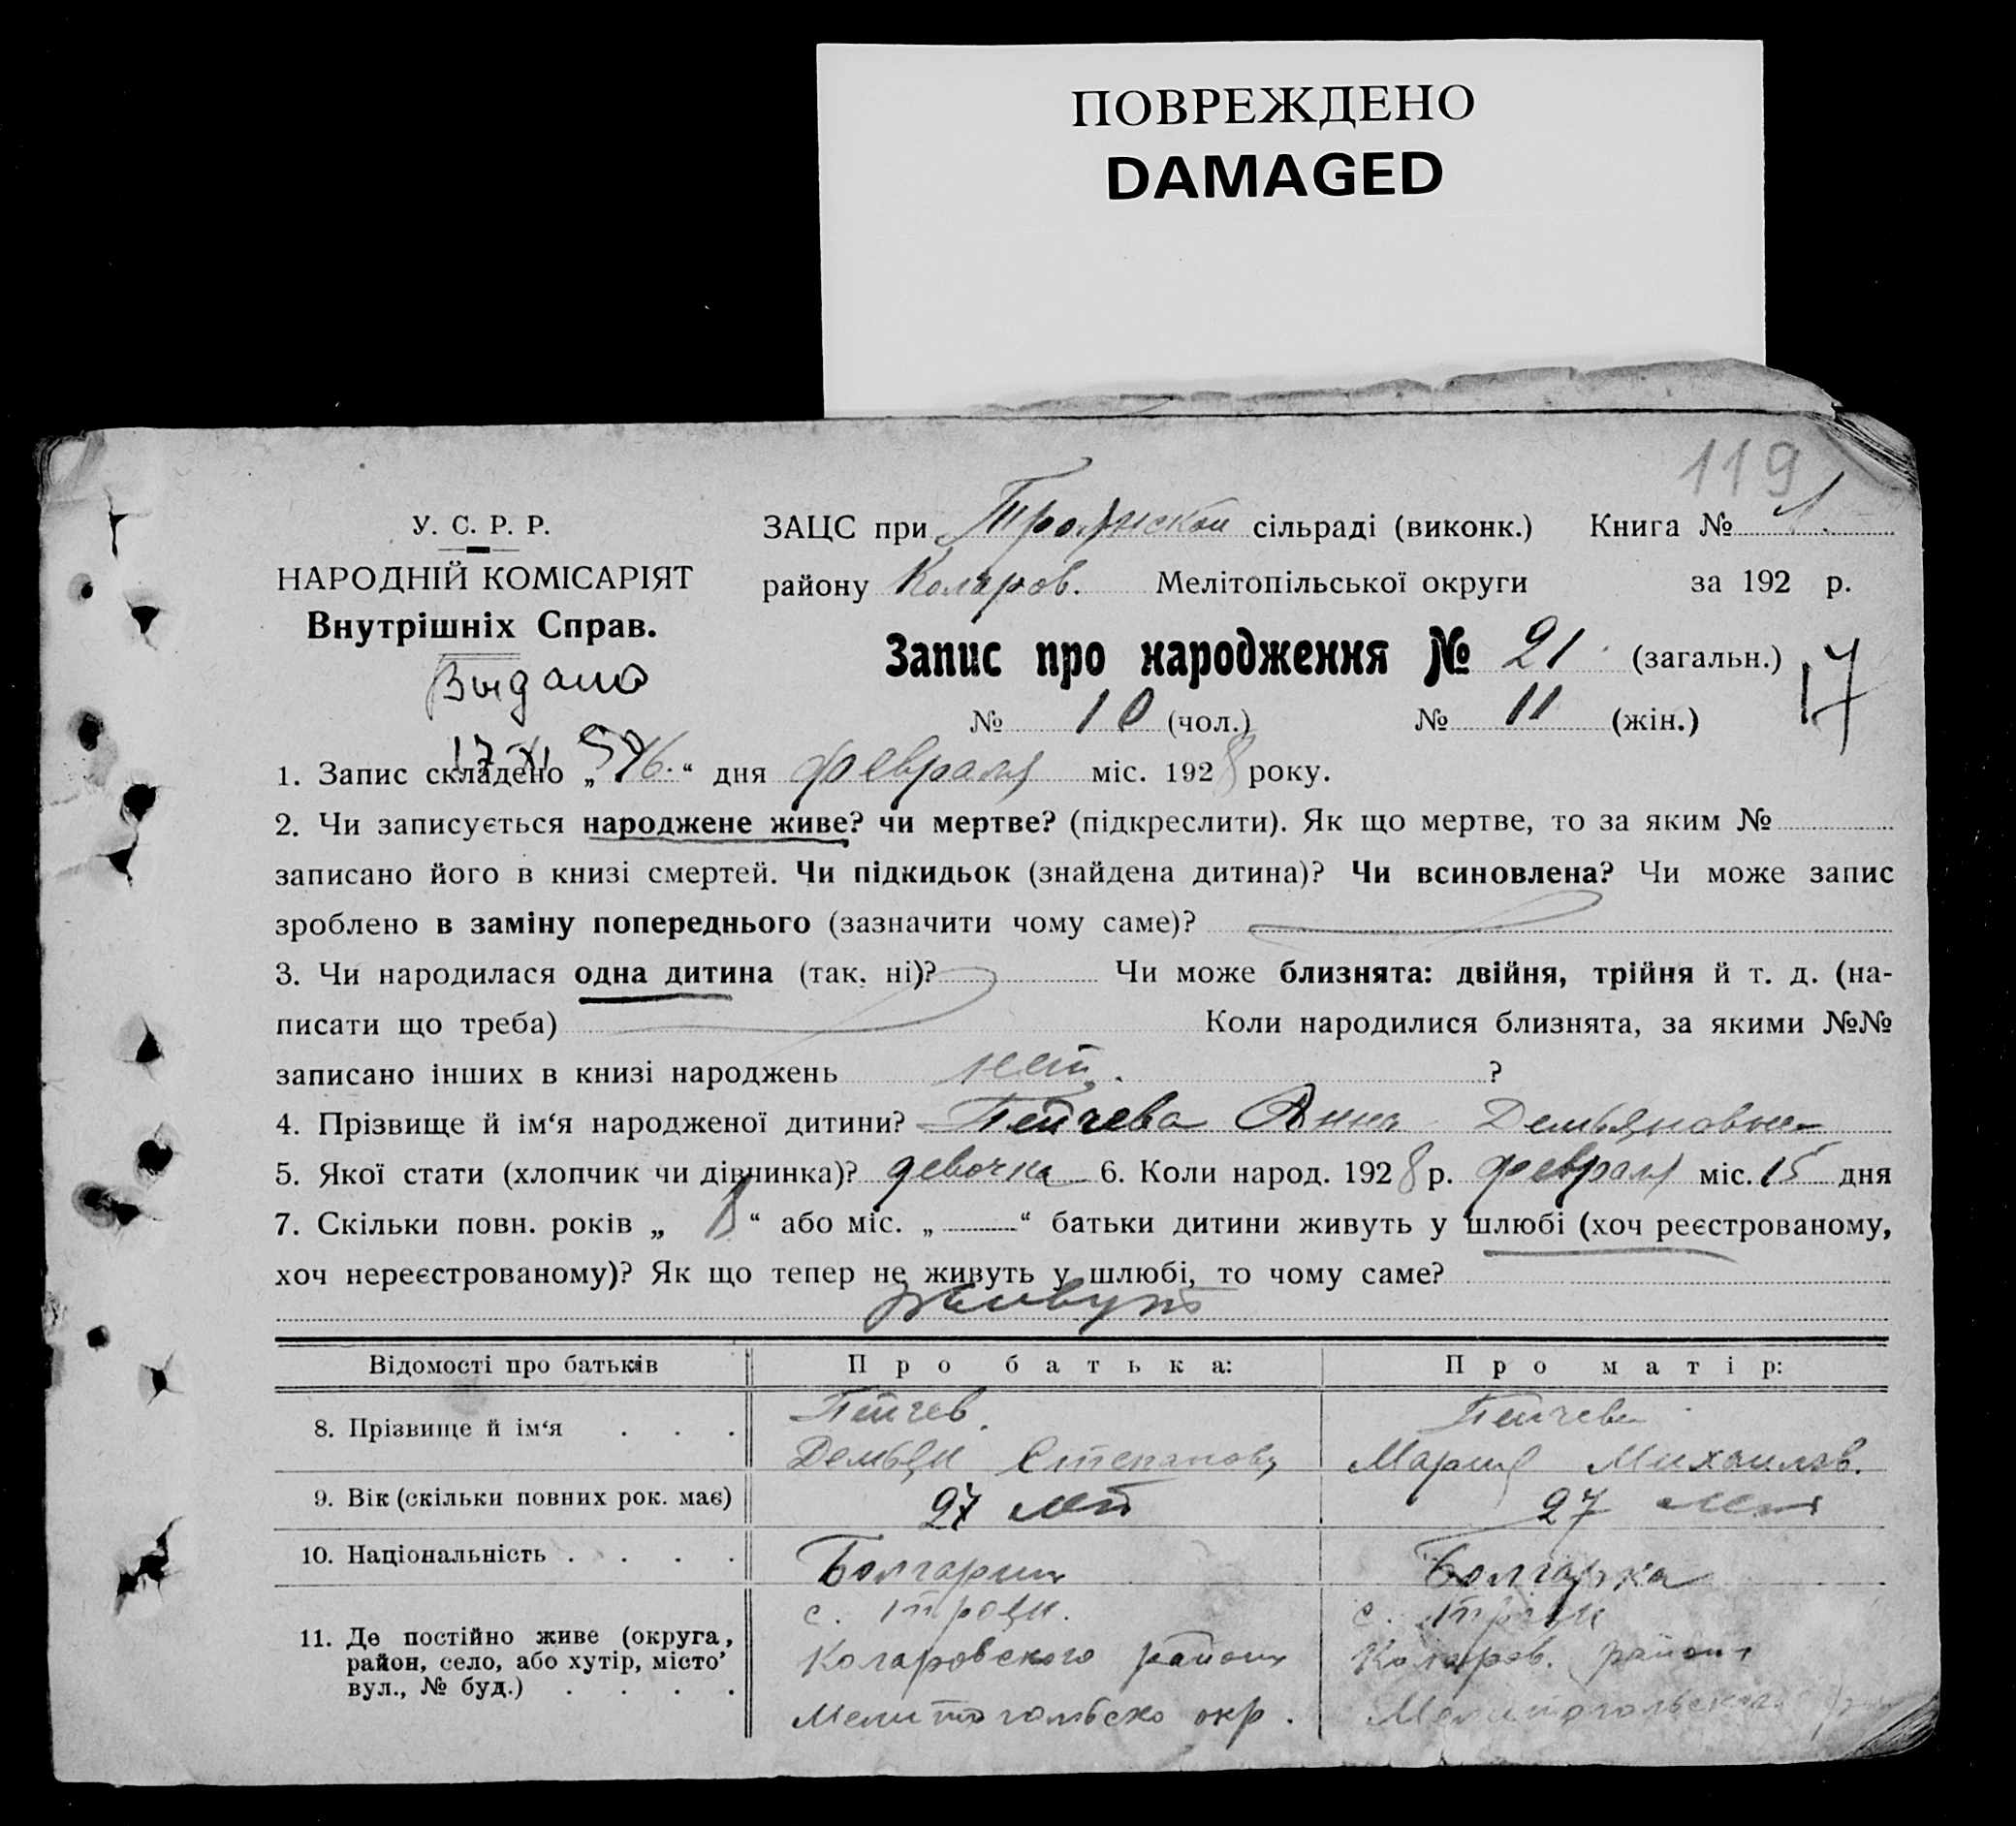 ПОВРЕЖДЕНО
DAMAGED
119
У. С. Р. Р.
НАРОДНІЙ КОМІСАРІЯТ
Внутрішніх Справ.
Выдано
17 XI 57
ЗАЦС при Троянской сільраді (виконк.) Книга № 1.
району Коларов. Мелітопільської округи за 192 р.
Запис про народження № 21 (загальн.)
17
№ 10 (чол.) № 11 (жін.)
1. Запис складено „16.“ дня февраля міс. 1928 року.
2. Чи записується народжене живе? чи мертве? (підкреслити). Як що мертве, то за яким №
записано його в книзі смертей. Чи підкидьок (знайдена дитина)? Чи всиновлена? Чи може запис
зроблено в заміну попереднього (зазначити чому саме)?
3. Чи народилася одна дитина (так, ні)? Чи може близнята: двійня, трійня й т. д. (на-
писати що треба) Коли народилися близнята, за якими №№
записано інших в книзі народжень нет. ?
4. Прізвище й ім‘я народженої дитини? Пейчева Анна Демьяновна
5. Якої стати (хлопчик чи дівчинка)? девочка 6. Коли народ. 1928 р. февраля міс. 15 дня
7. Скільки повн. років „ 8 “ або міс. „ “ батьки дитини живуть у шлюбі (хоч реєстрованому,
хоч нереєстрованому)? Як що тепер не живуть у шлюбі, то чому саме?
живут
Відомості про батьків Про батька: Про матір:
8. Прізвище й ім‘я . . . Пейчев. Демьян Степанов Пейчева Мария Михаилов.
9. Вік (скільки повних рок. має) 27 лет 27 лет
10. Національність . . . . Болгарин Болгарка
11. Де постійно живе (округа, район, село, або хутір, місто’ вул., № буд.) . . . .
с. Троян. Коларовского района Мелитопольско окр.
с. Троян Коларов. района Мелитопольской